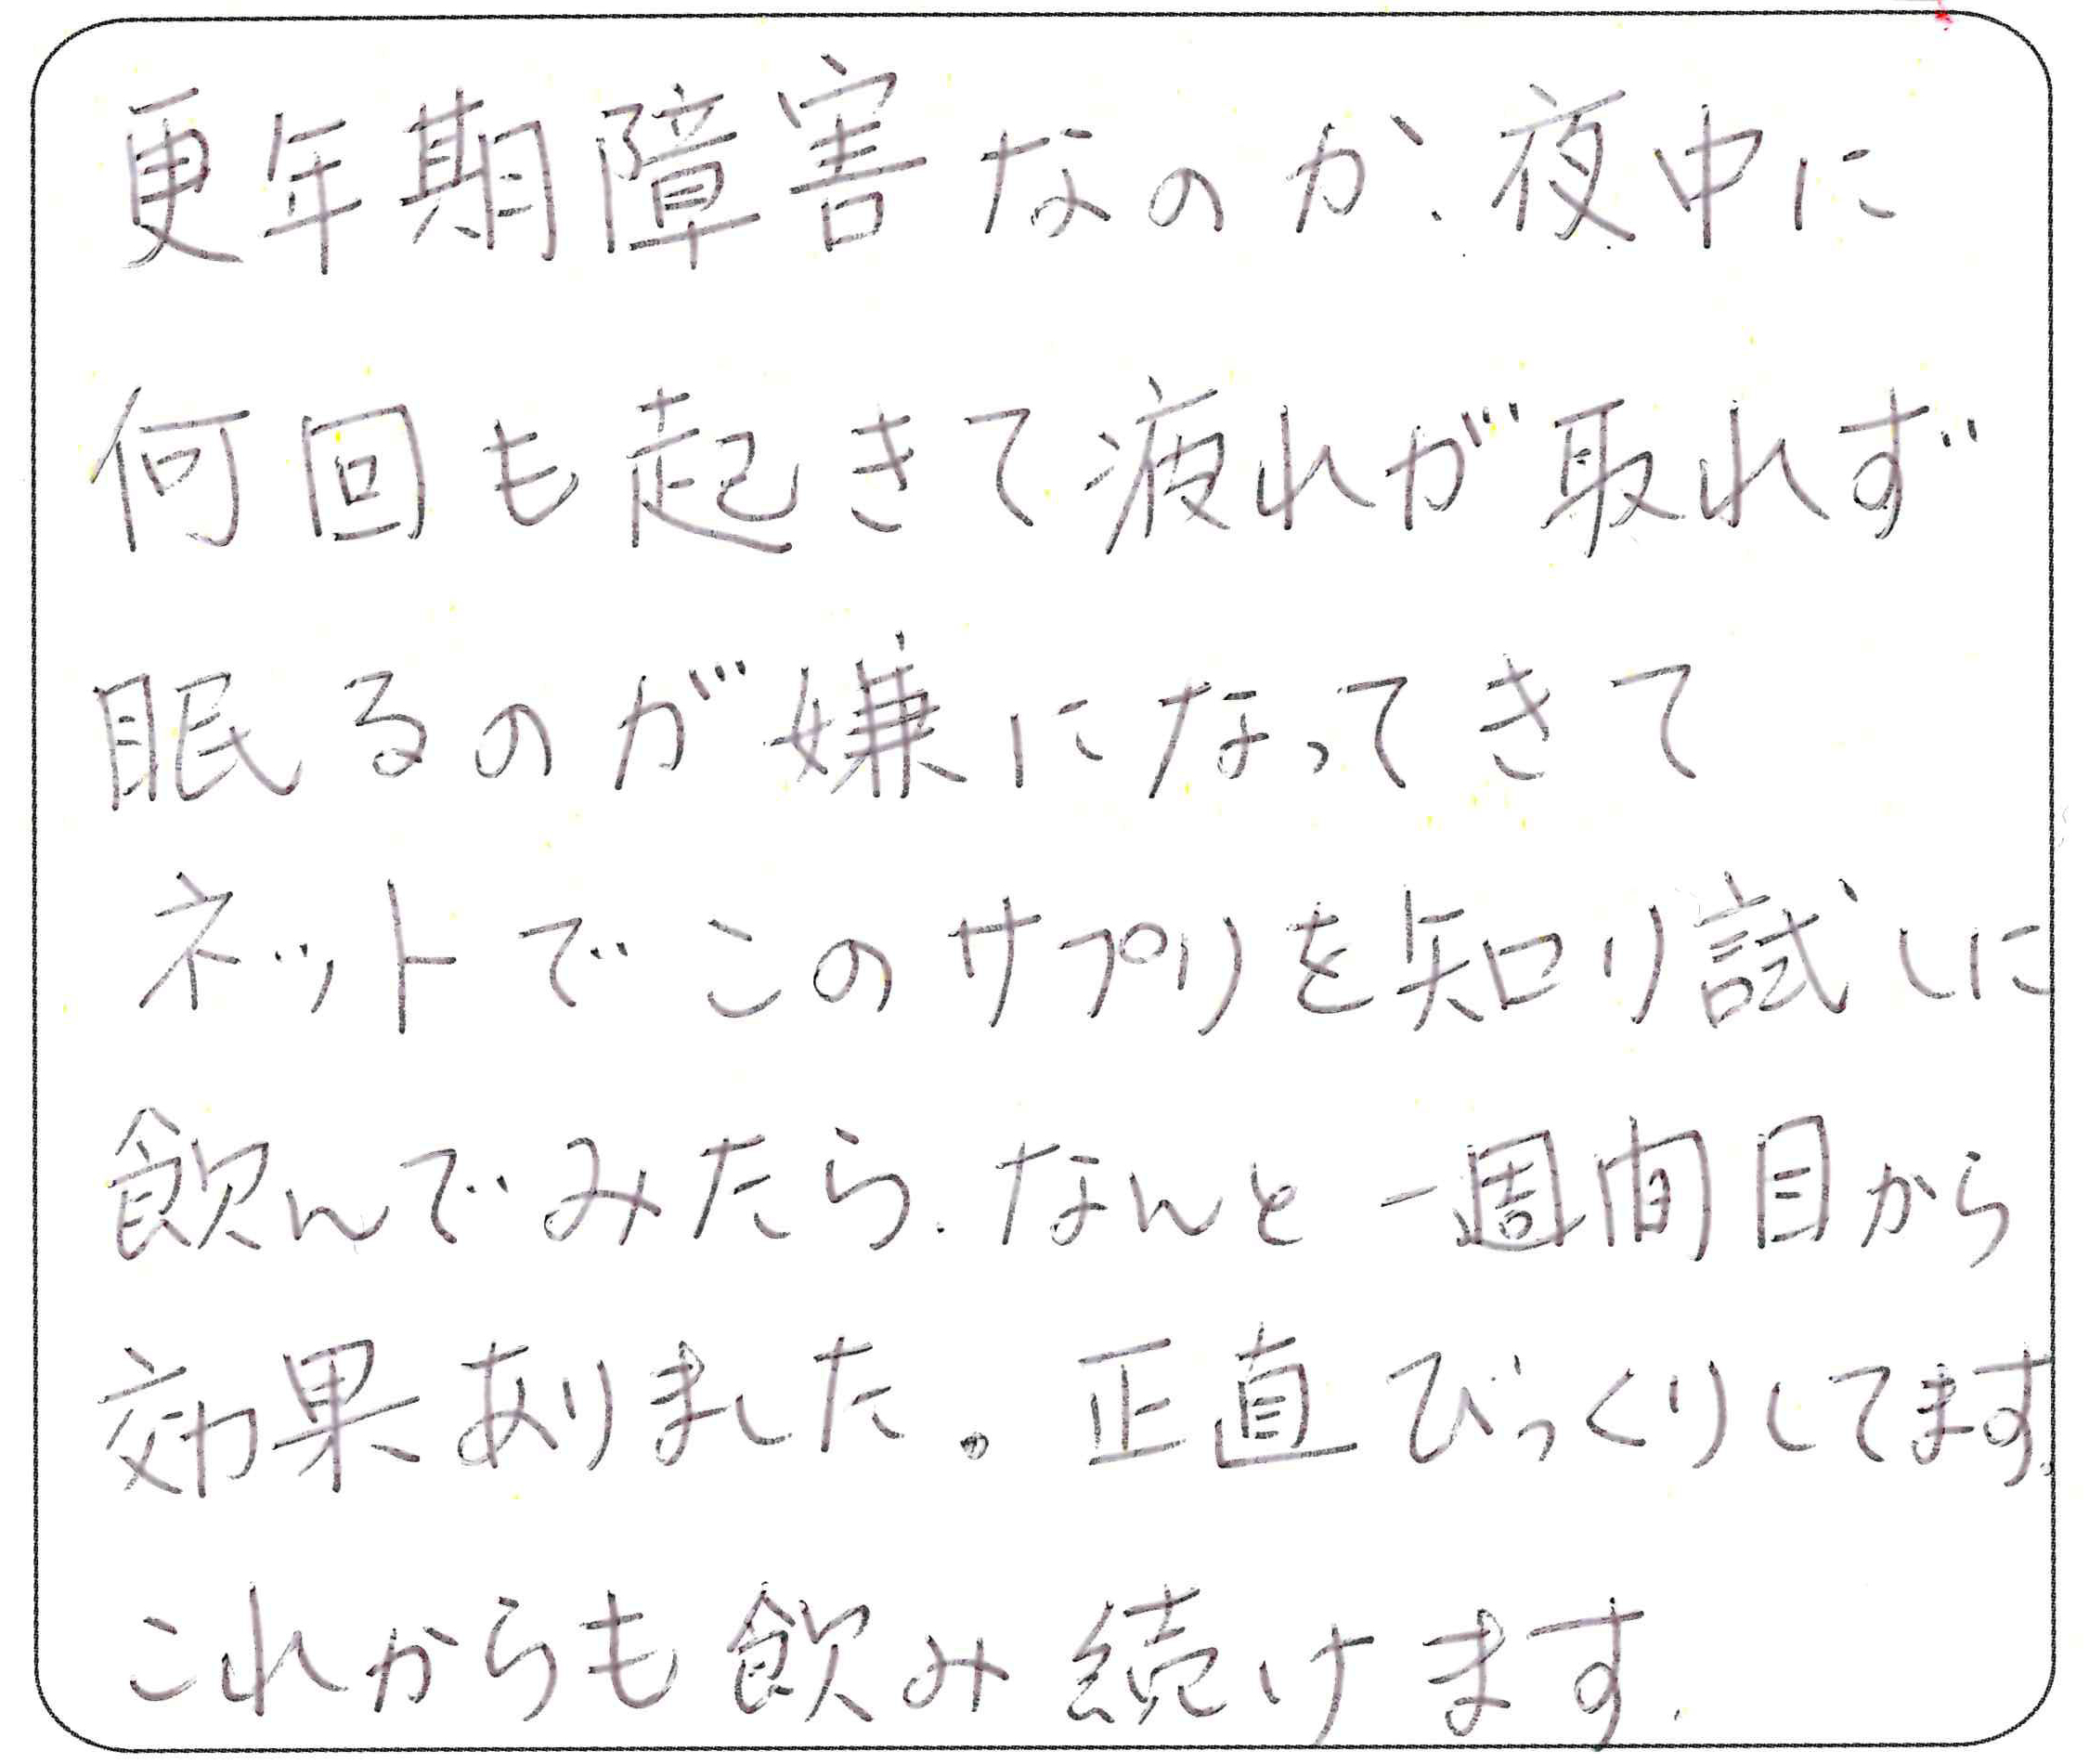 更年期障害なのか、夜中に
何回も起きて疲れが取れず
眠るのが嫌になってきて
ネットでこのサプリを知り試しに
飲んでみたら、なんと一週間目から
効果ありました。正直びっくりしてます。
これからも飲み続けます.